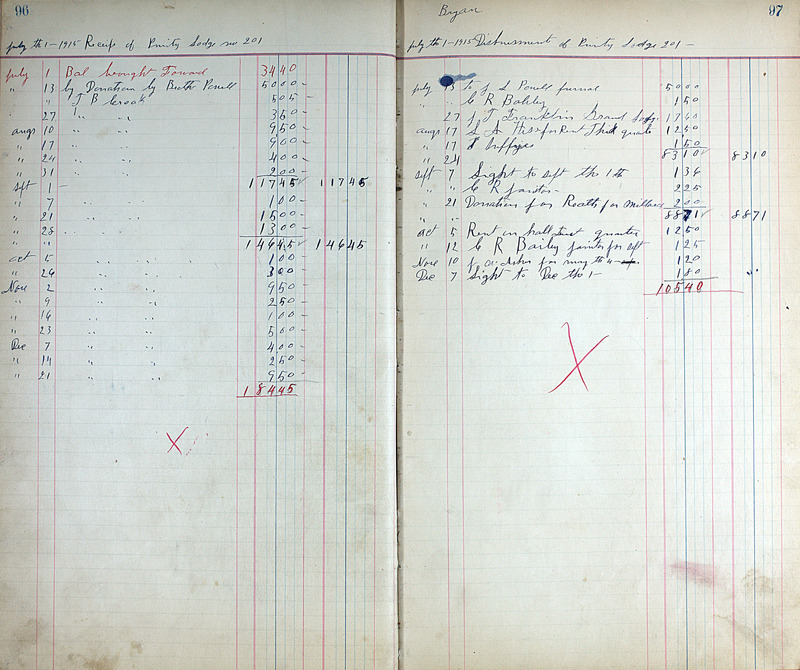 96
july th 1-1915 Receips of Purity Lodge no 201
july 1 Bal brought Forward 3440
" 13 by Donation by Broth Powell 5000
" " J B Crook 505
" 27 " " 350
augs 10 " " 950
" 17 " " 900
" 24 " " 400
" 31 " " 200
sept 1 11745 11745
" 7 " " 100
" 21 " " 1500
" 28 " " 1300
" " 14645 14645
oct 5 " " 100
" 26 " " 300
Nove 2 " " 950
" 9 " " 250
" 16 " " 100
" 23 " " 500
Dec 7 " " 400
" 14 " " 250
" 21 " " 950
18445
X
Bryan
97
july th 1-1915 Disbursement of Purity Lodge 201-
july 13 to J L Powell funral 5000
" " C R Bailey 150
" 27 J T Franklin Grand Lodge 1740
augs 17 for Rent quate 1250
" 17 150
" 24 8310 8310
sept 7 Light to sept th 1th 136
" " C R janitor 225
" 21 Donation for for 200
8871 8871
oct 5 Rent on hall quarter 1250
" 12 C R Bailey janitor for sept 125
Nove 10 for 120
Dec 7 Light to Dec th 1- 180
10540
X